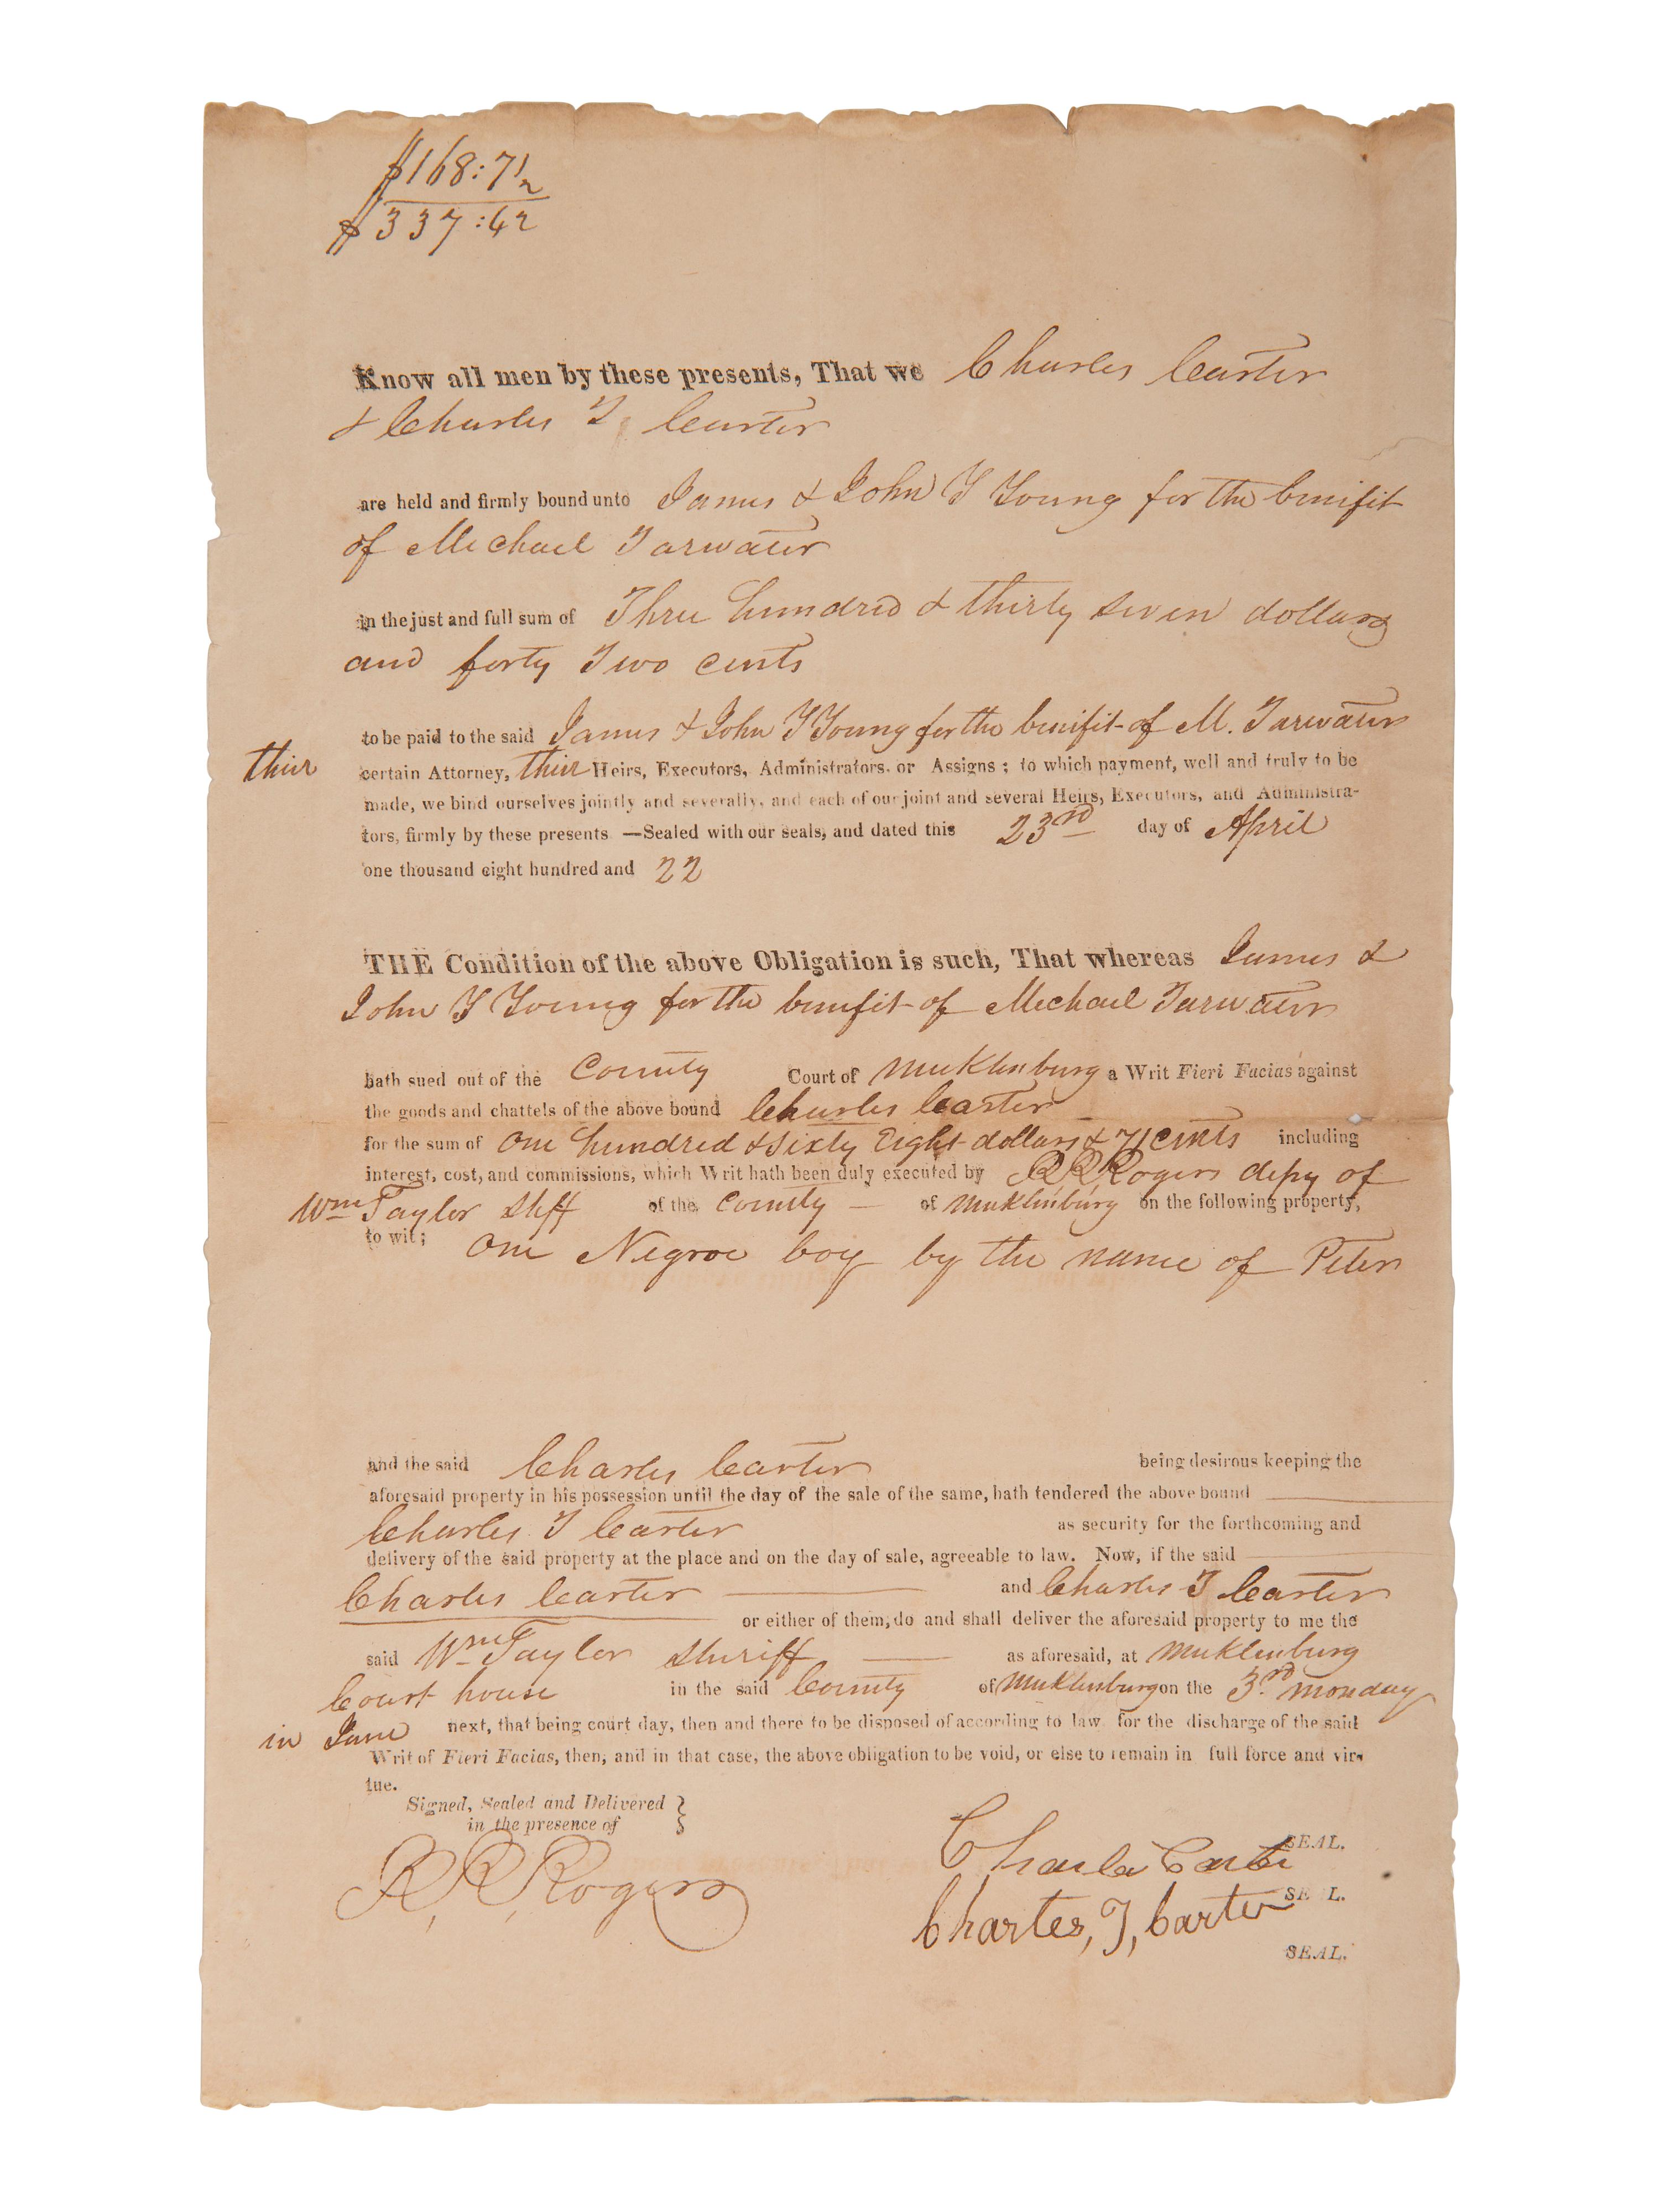 $168:71
$337:42
Know all men by these presents, That we Charles Carter
& Charles T Carter
are held and firmly bound unto James & John T Young for the benifit
of Michael Tarwater
in the just and full sum of Three hundred & thirty seven dollars
and forty Two cents
to be paid to the said James & John T Young for the benifit of M. Tarwater
their certain Attorney, their Heirs, Executors, Administrators, or Assigns; to which payment, well and truly to be
made, we bind ourselves jointly and severally, and each of our joint and several Heirs, Executors, and Administra-
tors, firmly by these presents —Sealed with our seals, and dated this 23rd day of April
one thousand eight hundred and 22
THE Condition of the above Obligation is such, That whereas James &
John T Young for the benifit of Michael Tarwater
hath sued out of the County Court of Mecklenburg a Writ Fieri Facias against
the goods and chattels of the above bound Charles Carter
for the sum of One hundred & sixty Eight dollars & 71 cents including
interest, cost, and commissions, which Writ hath been duly executed by R R Rogers depy of
Wm Taylor Shff of the County — of Mecklenburg on the following property,
to wit; One Negroe boy by the name of Peter
and the said Charles Carter being desirous keeping the
aforesaid property in his possession until the day of the sale of the same, hath tendered the above bound
Charles T Carter as security for the forthcoming and
delivery of the said property at the place and on the day of sale, agreeable to law. Now, if the said
Charles Carter and Charles T Carter
or either of them, do and shall deliver the aforesaid property to me the
said Wm Taylor Sheriff as aforesaid, at Mecklenburg
Court house in the said County of Mecklenburg on the 3rd monday
in June next, that being court day, then and there to be disposed of according to law for the discharge of the said
Writ of Fieri Facias, then, and in that case, the above obligation to be void, or else to remain in full force and vir-
tue.
Signed, Sealed and Delivered }
in the presence of
R, R, Rogers
Charles Carter SEAL.
Charles, T, Carter SEAL.
SEAL.